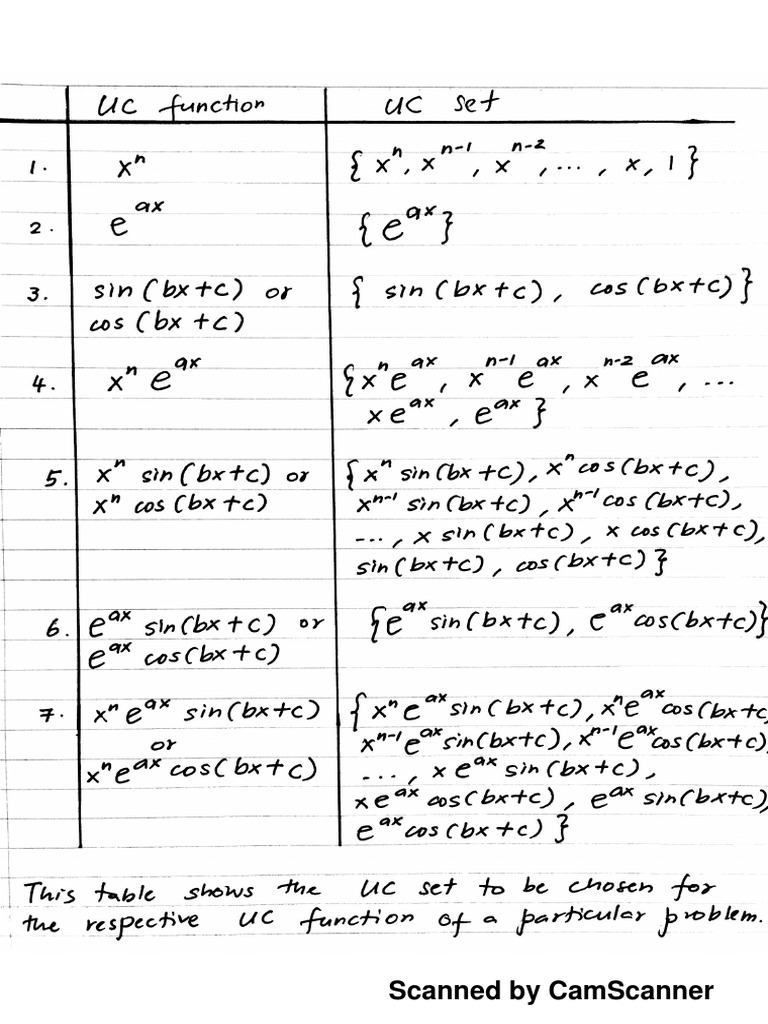 UC function UC set
1. xⁿ { xⁿ, xⁿ⁻¹, xⁿ⁻², ..., x, 1 }
2. e^{ax} { e^{ax} }
3. sin (bx+c) or { sin (bx+c), cos (bx+c) }
cos (bx+c)
4. xⁿ e^{ax} { xⁿ e^{ax}, xⁿ⁻¹ e^{ax}, xⁿ⁻² e^{ax}, ...
x e^{ax}, e^{ax} }
5. xⁿ sin (bx+c) or { xⁿ sin (bx+c), xⁿ cos (bx+c),
xⁿ cos (bx+c) xⁿ⁻¹ sin (bx+c), xⁿ⁻¹ cos (bx+c),
..., x sin (bx+c), x cos (bx+c),
sin (bx+c), cos (bx+c) }
6. e^{ax} sin (bx+c) or { e^{ax} sin (bx+c), e^{ax} cos (bx+c) }
e^{ax} cos (bx+c)
7. xⁿ e^{ax} sin (bx+c) { xⁿ e^{ax} sin (bx+c), xⁿ e^{ax} cos (bx+c
or xⁿ⁻¹ e^{ax} sin (bx+c), xⁿ⁻¹ e^{ax} cos (bx+c)
xⁿ e^{ax} cos (bx+c) ..., x e^{ax} sin (bx+c),
x e^{ax} cos (bx+c), e^{ax} sin (bx+c),
e^{ax} cos (bx+c) }
This table shows the UC set to be chosen for
the respective UC function of a particular problem.
Scanned by CamScanner